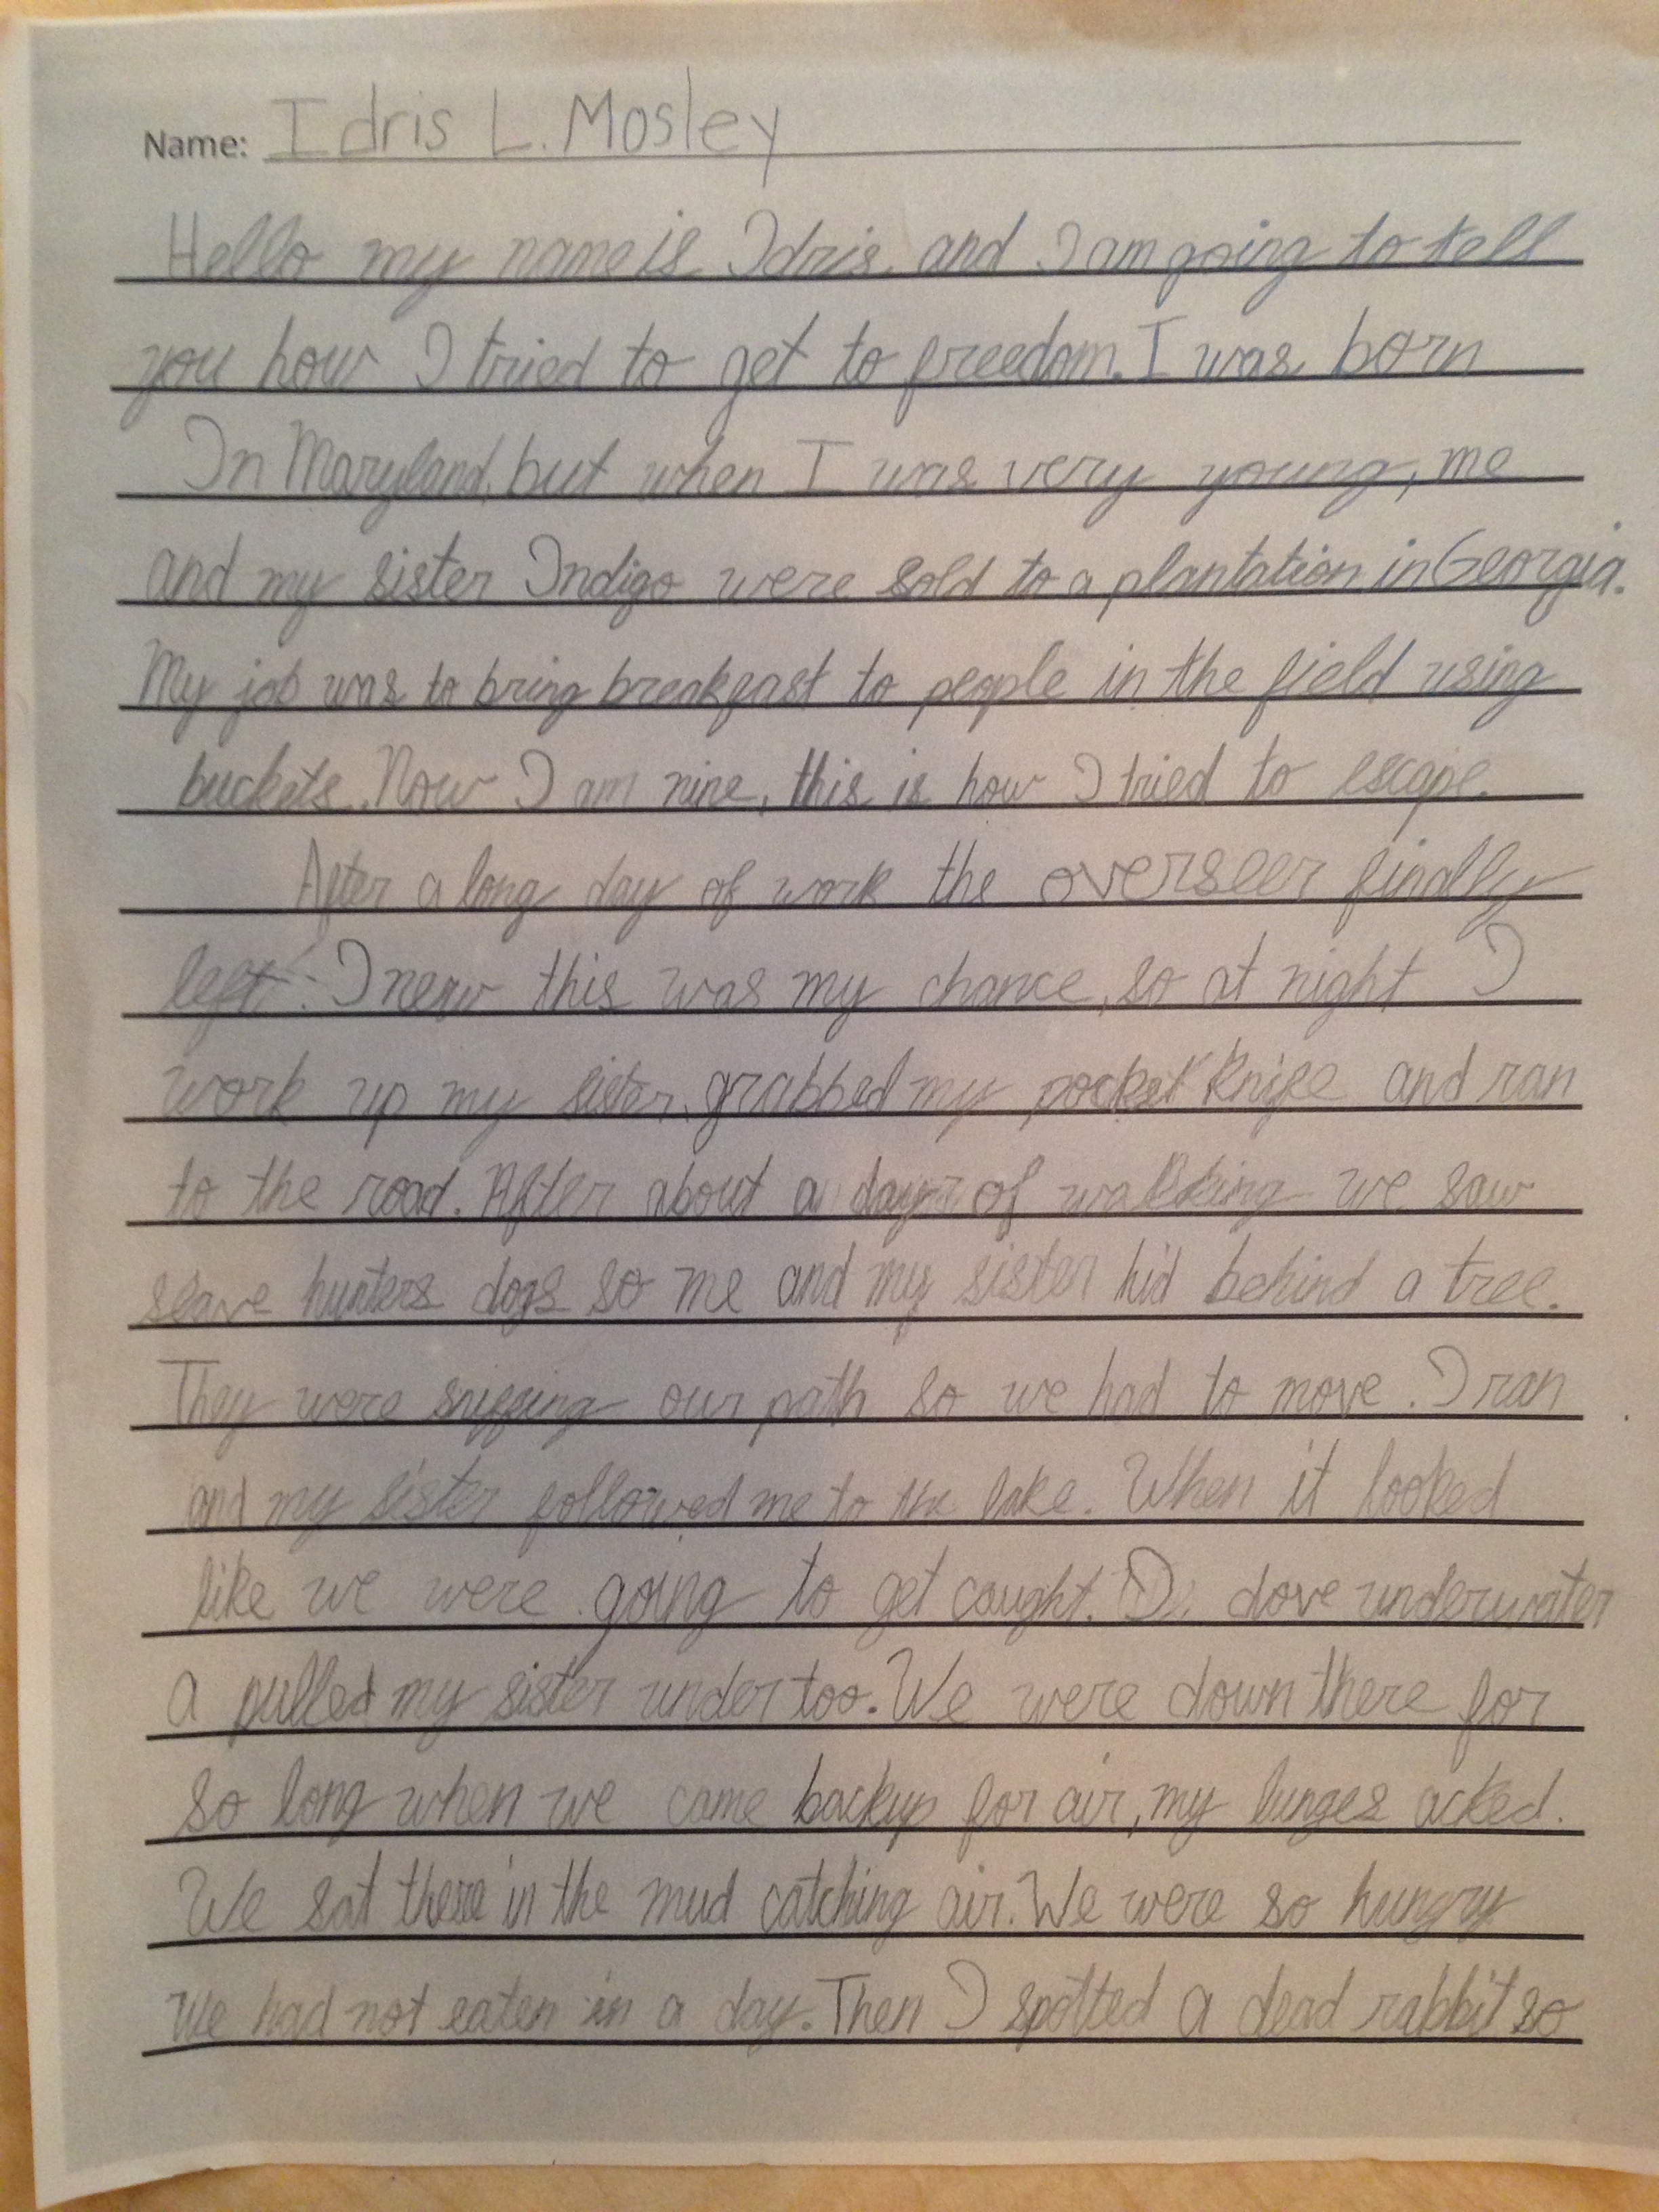 Name: Idris L. Mosley
Hello my name is Idris, and I am going to tell
you how I tried to get to freedom. I was born
In Maryland, but when I was very young, me
and my sister Indigo were sold to a plantation in Georgia.
My job was to bring breakfast to people in the field using
buckets. Now I am nine, this is how I tried to escape.
After a long day of work the overseer finally
left. I new this was my chance, so at night I
work up my sister, grabbed my pocket knife and ran
to the road. After about a day of walking we saw
slave hunters dogs so me and my sister hid behind a tree.
They were sniffing our path so we had to move. I ran
and my sister followed me to the lake. When it looked
like we were going to get caught. I dove underwater
a pulled my sister under too. We were down there for
so long when we came backup for air, my lunges acked.
We sat there in the mud catching air. We were so hungry
We had not eaten in a day. Then I spotted a dead rabbit so